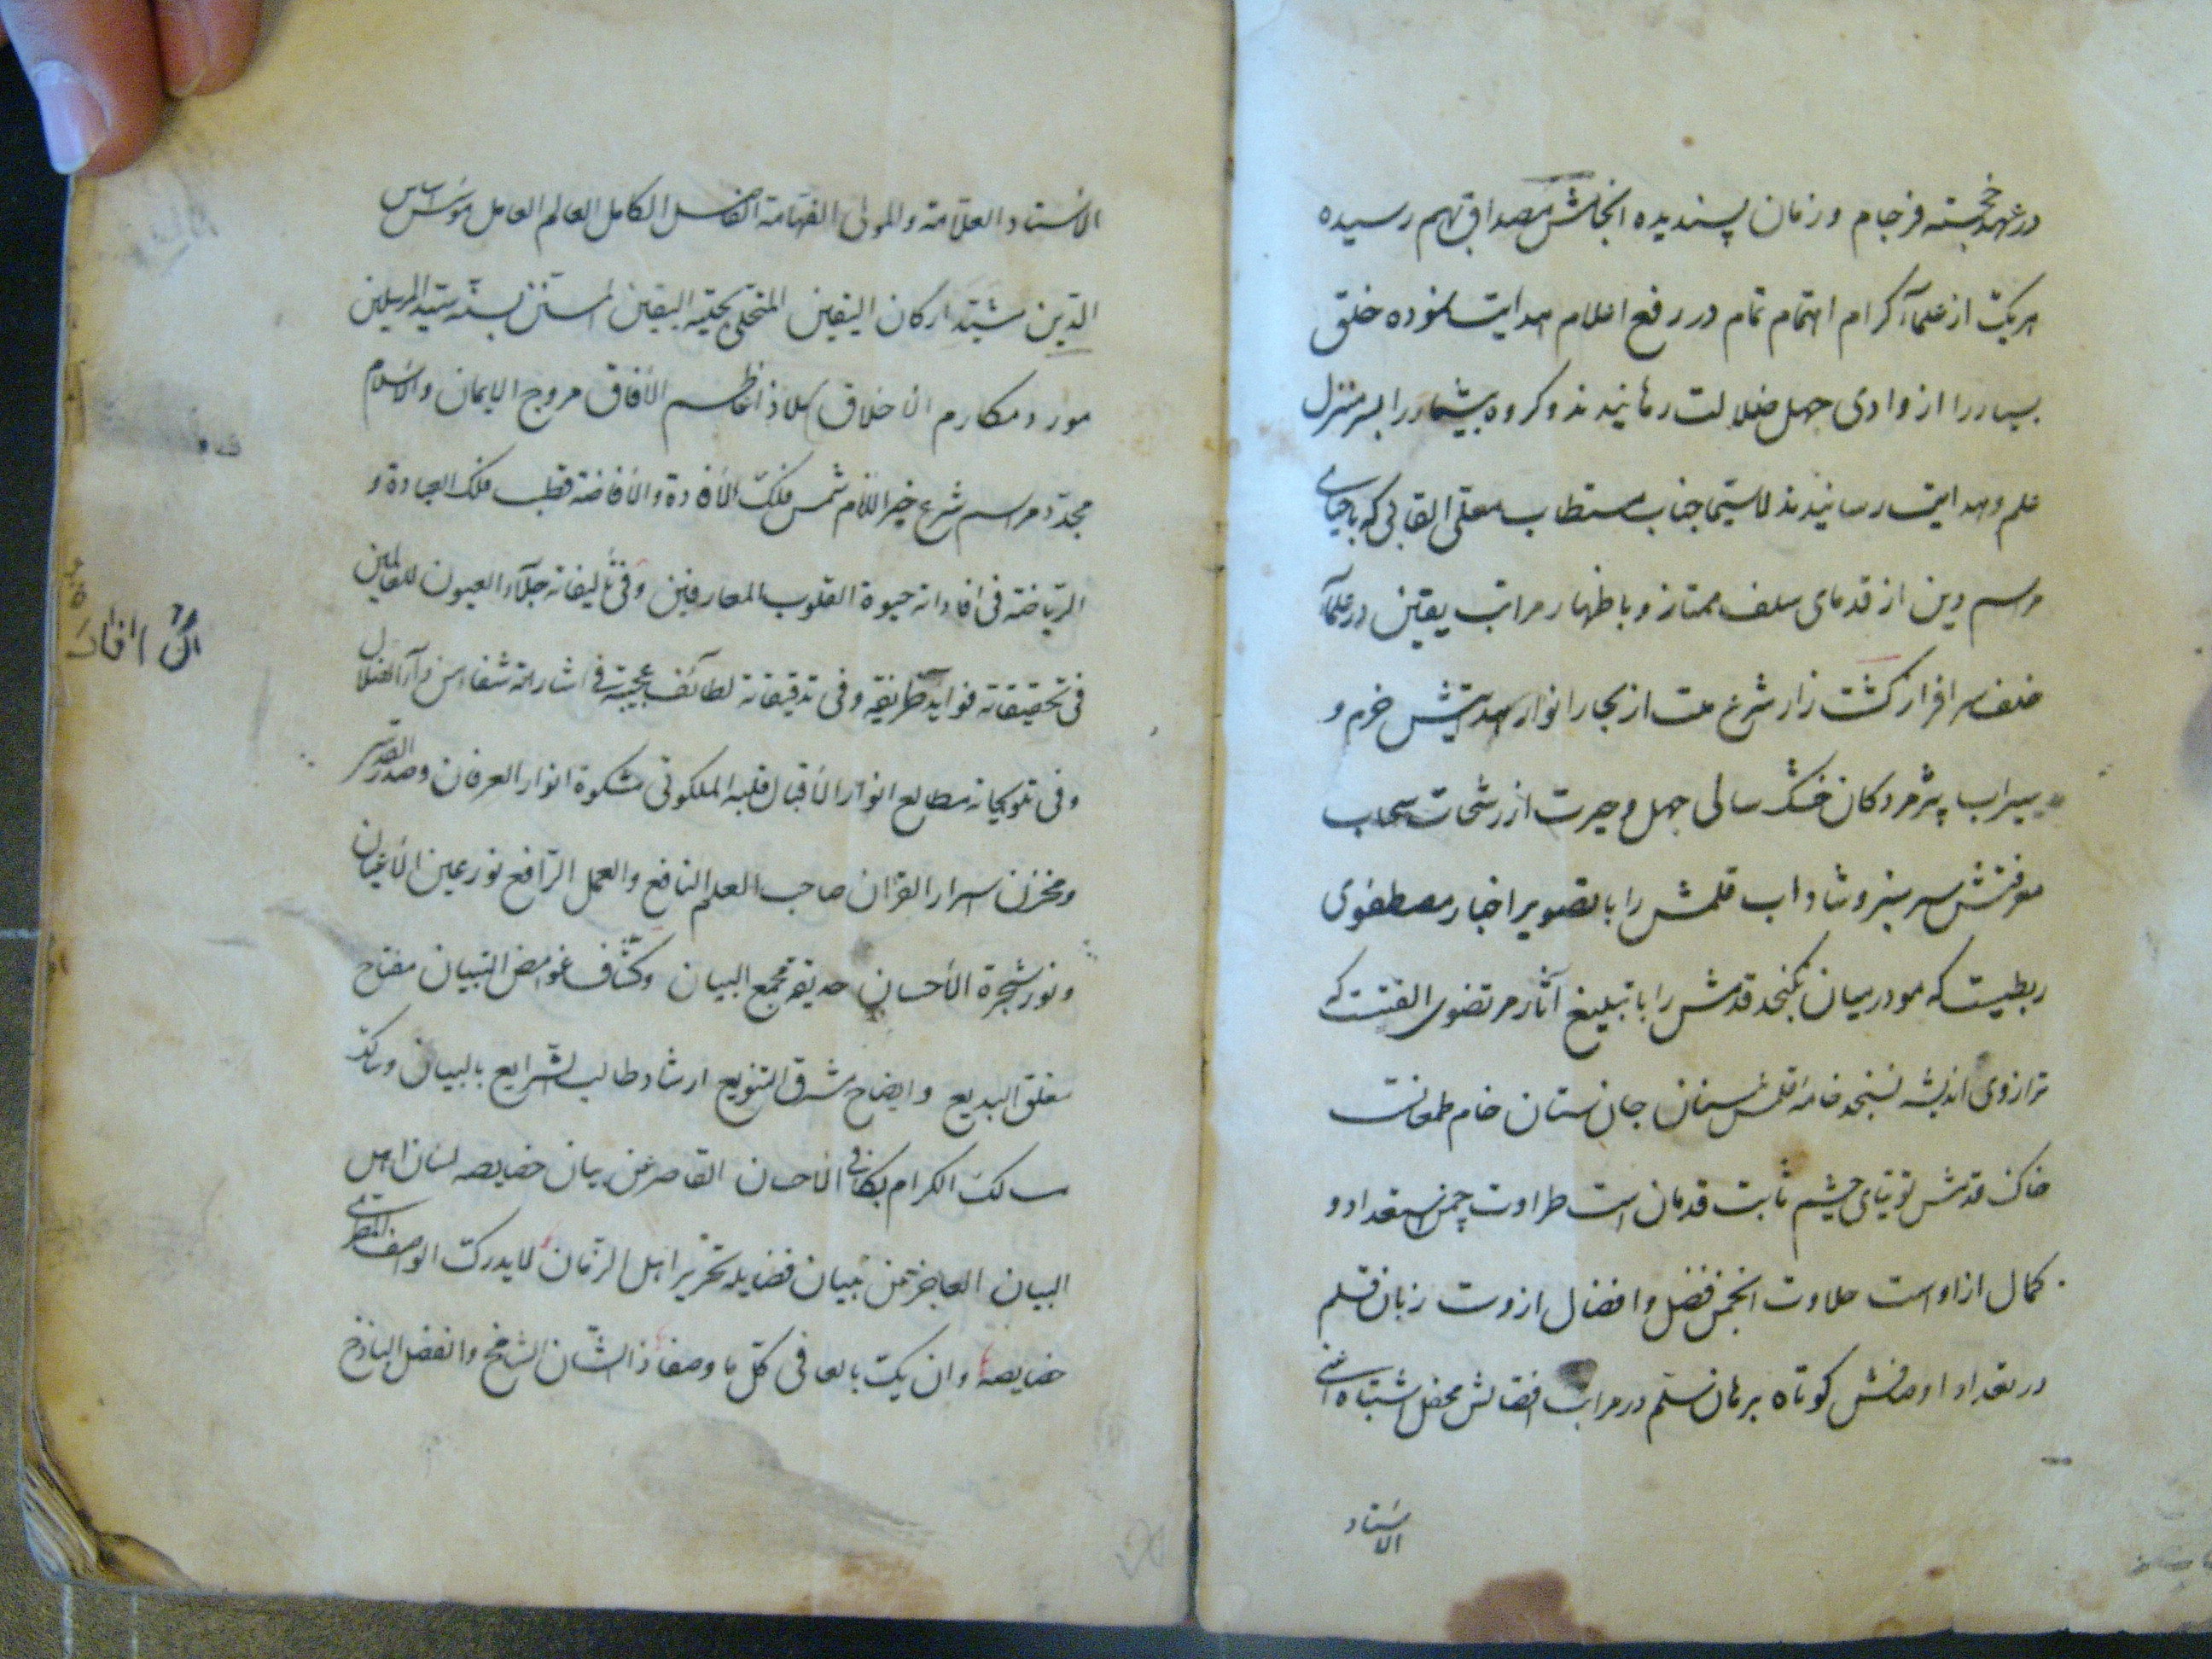 در عهد خجسته فرجام و زمان پسندیده انجامش مصداق بهم رسیده
هر یک از علمآء کرام اهتمام تمام در رفع اعلام هدایت نموده خلق
بسیار را از وادی جهل ضلالت رهانیدند و کروه بیشمار را بسرمنزل
علم و هدایت رسانیدند لاسیما جناب مستطاب معلی القابی که باحیای
مراسم دین از قدمای سلف ممتاز و باظهار مراتب یقین در علمآء
خلف سرافراز کشت زار شرع ملت از بحار انوار هدایتش خرم و
سیراب پژمردکان خشک سالی جهل و حیرت از رشحات سحاب
معرفتش سرسبز و شاداب قلمش را با تصویر اخبار مصطفوی
ربطیست که مو درمیان نکنجد قدمش را با تبلیغ آثار مرتضوی الفتیست که
ترازوی اندیشه نسنجد خامه قلمش سنان جان ستان خام طمعانست
خاک قدمش توتیای چشم ثابت قدمان است طراوت چمن استعداد و
کمال ازاوست حلاوت انجمن فضل و افضال ازوست زبان قلم
در تعداد اوصافش کوتاه برهان سلم در مراتب افضالش محض اشتباه اعنی
الاستاد
الاستاد العلامة والمولی الفهامة الفاضل الکامل العالم العامل مؤسس اساس
الدین مشید ارکان الیقین المتحلی بحلیة الیقین المستنن بسنة سید المرسلین
مورد مکارم الاخلاق ملاذ اعاظم الافاق مروج الایمان والاسلام
مجدد مراسم شرع خیر الانام شمس فلک الافادة والافاضة قطب فلک العبادة و
الریاضة فی افاداته حیوة القلوب العارفین وفی تألیفاته جلآء العیون للعالمین
فی تحقیقاته فواید طریفه وفی تدقیقاته لطائف عجیبة فی اشاراته شفاء من دآء الضلال
وفی تلویحاته مطالع انوار الاقبال قلبه الملکوتی مشکوة انوار العرفان وصدره
ومخزن اسرار القران صاحب العلم النافع والعمل الرافع نور عین الاعیان
ونور شجرة الاحسان حدیقة مجمع البیان وکشاف غوامض التبیان مفتاح
مغلق البدیع وایضاح مشرق التنویع ارشاد طالب الشرایع بالبیان وسالک
مسالک الکرام الاحسان القاصر عن بیان خصایصه لسان اهل
البیان العاجز عن تبیان فضایله تحریر اهل الزمان لایدرک الواصف المطری
خصایصه وان یک بالغا فی کل ما وصفا ذا الشان الشامخ والفضل الباذخ